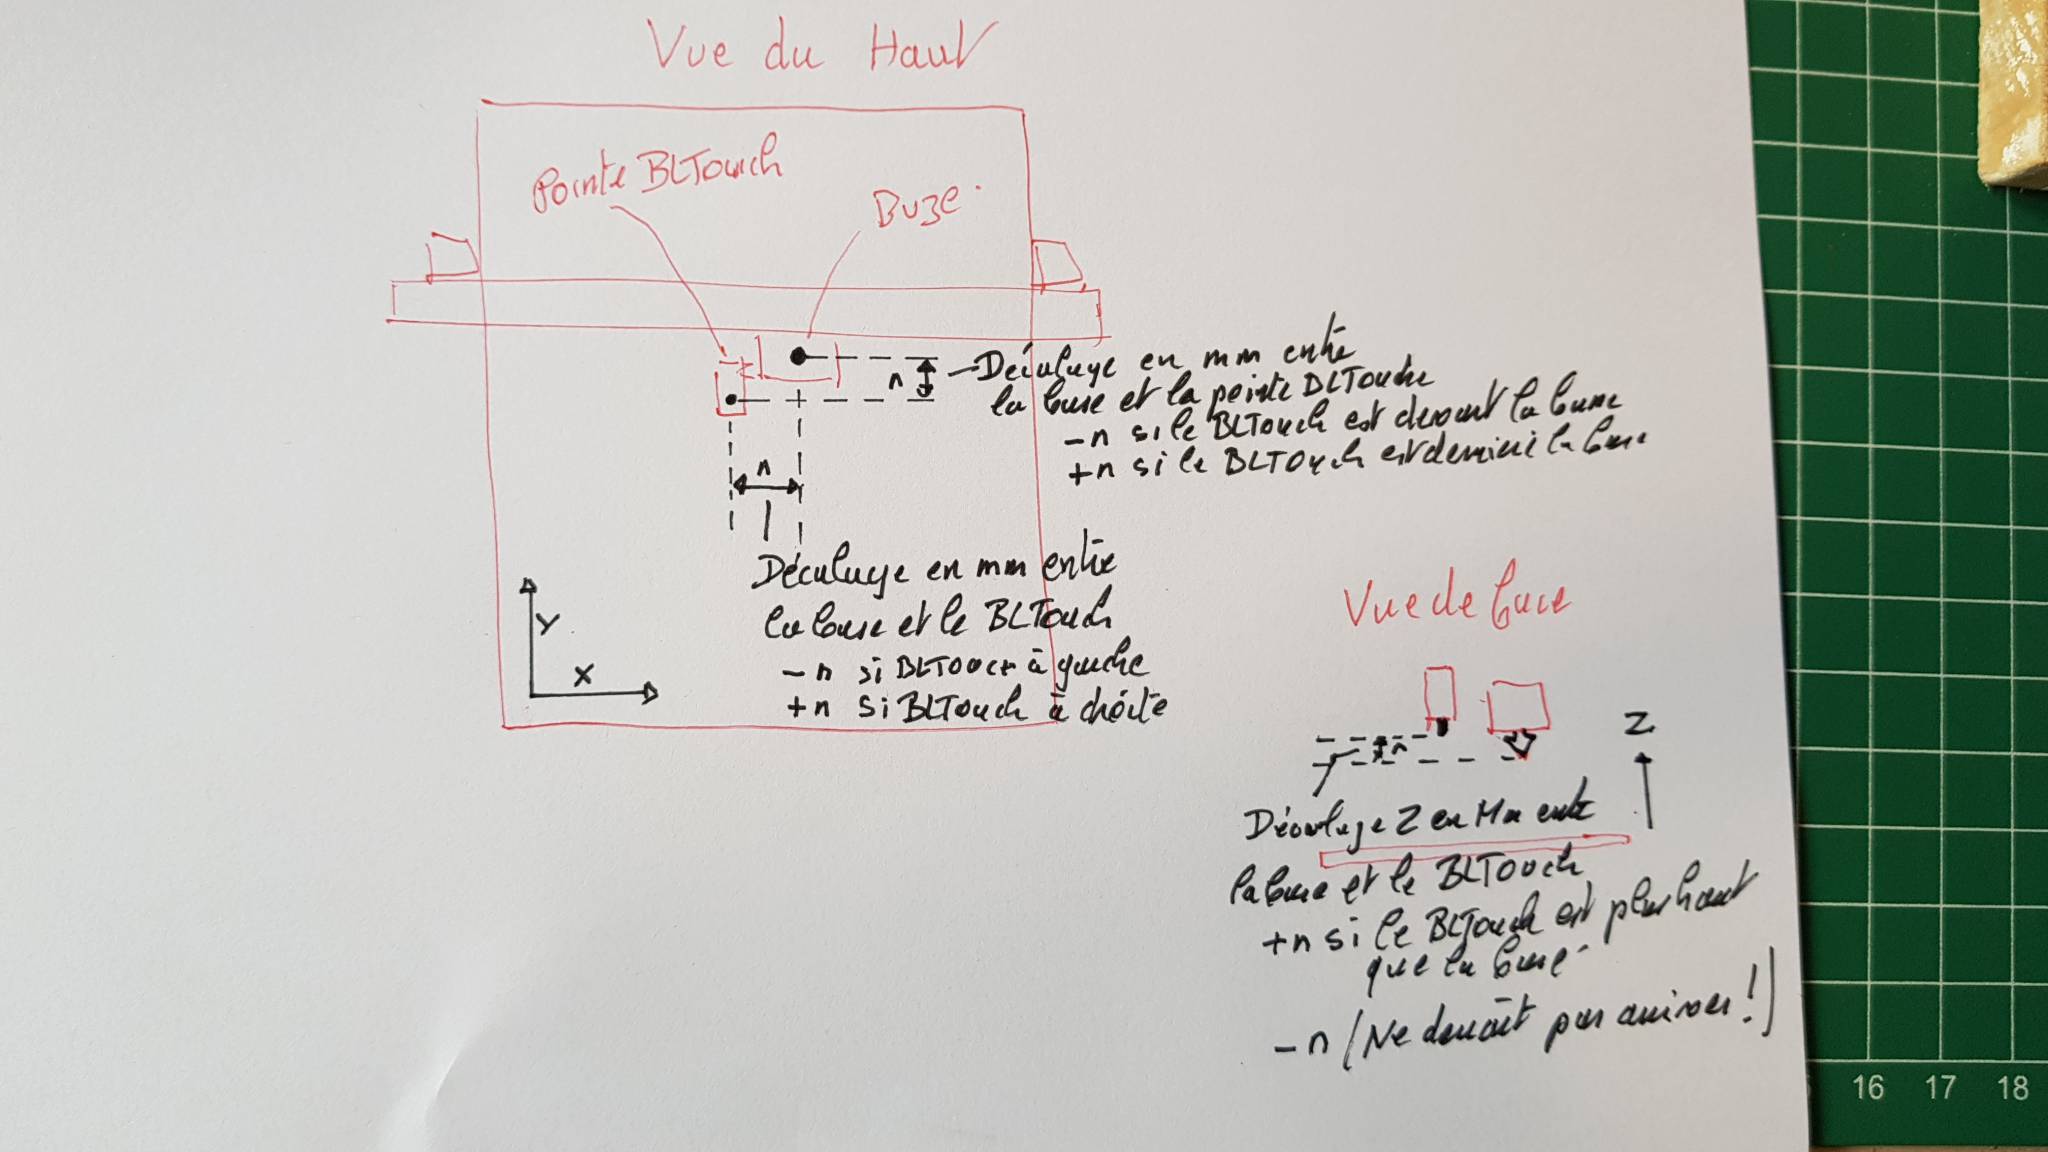 Vue du Haut
Pointe BLTouch
Buze
n
Décalage en mm entre
la buse et la pointe BLTouche
-n si le BLTouch est devant la buse
+n si le BLTouch est derrière la buse
n
Décalage en mm entre
la buse et le BLTouch
-n si BLTouch à gauche
+n si BLTouch à droite
Y
X
Vue de face
Z
n
Décalage Z en Mm entre
la buse et le BLTouch
+n si le BLTouch est plus haut
que la buse
-n (Ne devrait pas arriver!)
16 17 18